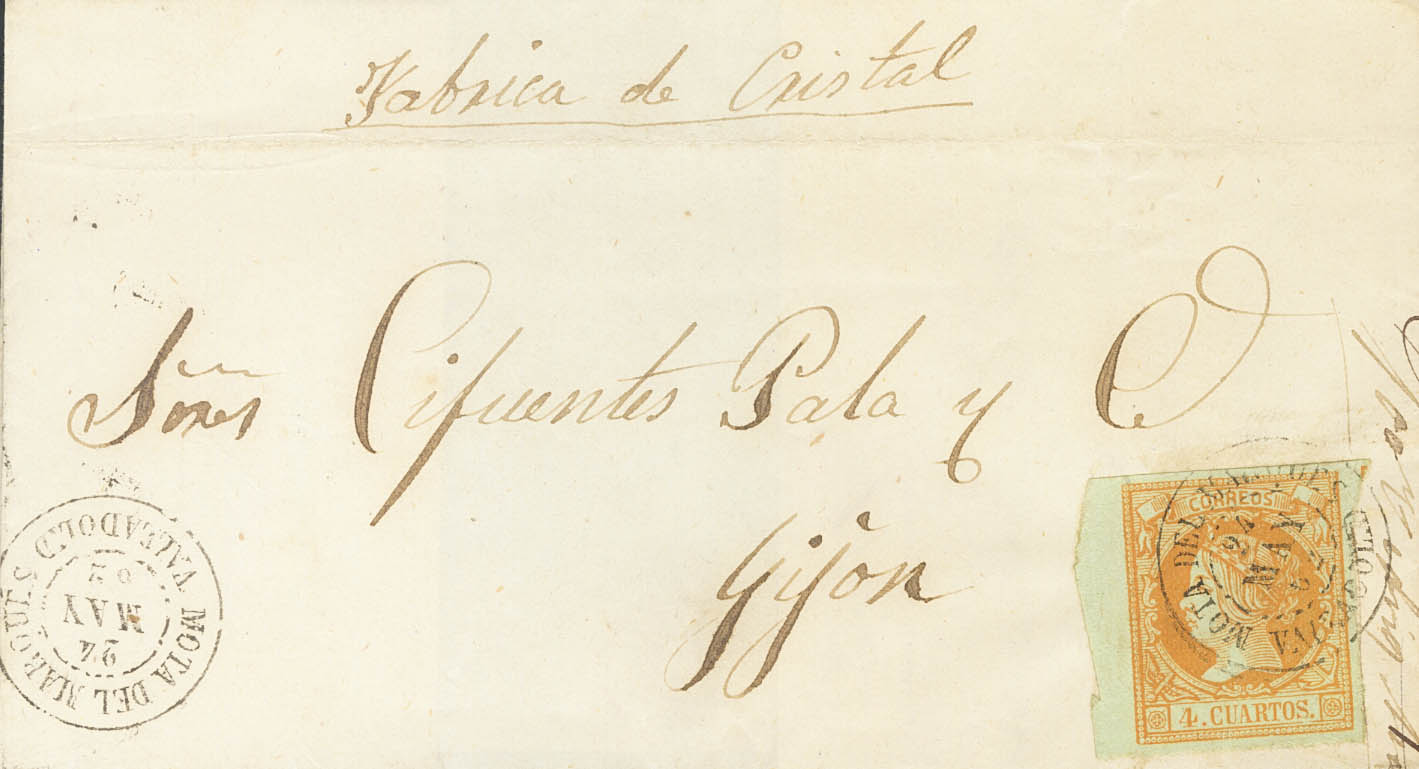 Fabrica de Cristal
Sres Cifuentes Pola y Cª
Gijón
MOTA DEL MARQUES
24
MAY
VALLADOLID
CORREOS
4. CUARTOS.
MOTA DEL MARQUES
24
MAY
VALLADOLID